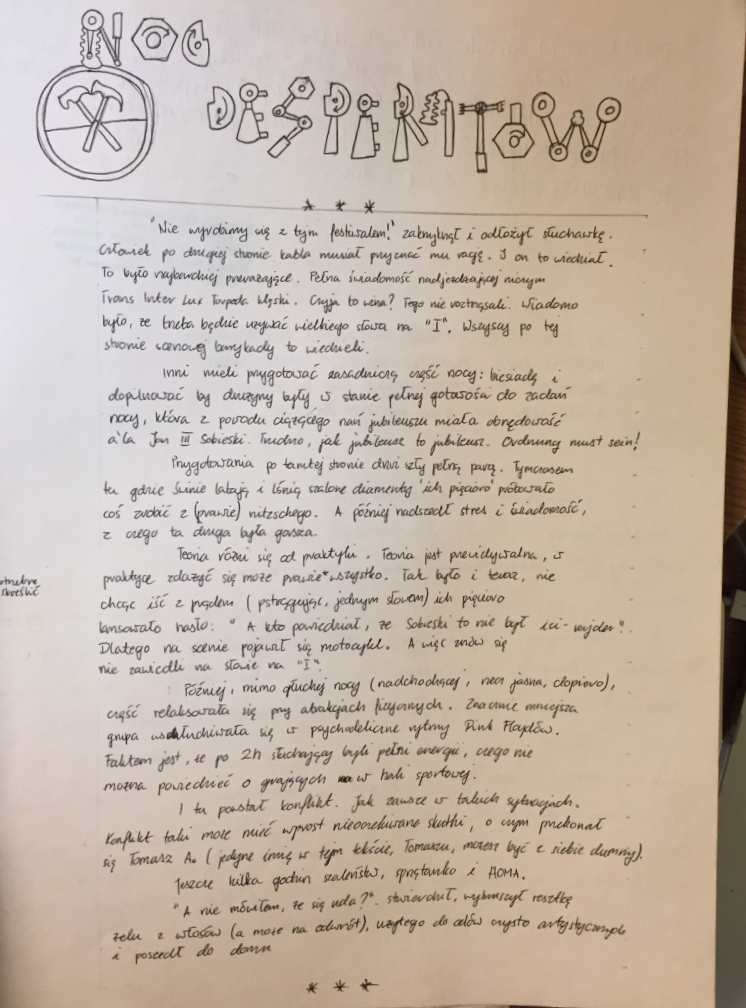 NOC
DESPERATÓW
* * *
"Nie wyrobimy się z tym festiwalem!" zakrzyknął i odłożył słuchawkę.
Człowiek po drugiej stronie kabla musiał przyznać mu rację. I on to wiedział.
To było najbardziej przerażające. Pełna świadomość nadjeżdżającej niczym
Trans Inter Lux Torpeda klęski. Czyja to wina? Tego nie roztrząsali. Wiadomo
było, że trzeba będzie używać wielkiego słowa na "I". Wszyscy po tej
stronie scenowej barykady to wiedzieli.
Inni mieli przygotować zasadniczą część nocy: biesiadę i
dopilnować by drużyny były w stanie pełnej gotowości do zadań
nocy, która z powodu ciążącego nań jubileuszu miała obrzędowość
a'la Jan III Sobieski. Trudno, jak jubileusz to jubileusz. Ordnung must sein!
Przygotowania po tamtej stronie drzwi szły pełną parą. Tymczasem
tu gdzie świnie latają i lśnią szalone diamenty 'ich pięcioro' próbowało
coś zrobić z (prawie) niczego. A później nadszedł stres i świadomość,
z czego ta druga była gorsza.
Teoria różni się od praktyki. Teoria jest przewidywalna, w
praktyce zdarzyć się może prawie* wszystko. Tak było i teraz, nie
skreślić
chcąc iść z prądem (pstrągując, jednym słowem) ich pięcioro
lansowało hasło: "A kto powiedział, że Sobieski to nie był izi-rajder".
Dlatego na scenie pojawił się motocykl. A więc znów się
nie zawiedli na słowie na "I".
Później, mimo głuchej nocy (nadchodzącej, rzecz jasna, dopiero),
część relaksowała się przy atrakcjach fizycznych. Znacznie mniejsza
grupa wsłuchiwała się w psychodeliczne rytmy Pink Flojdów.
Faktem jest, że po 2h słuchający byli pełni energii, czego nie
można powiedzieć o grających w hali sportowej.
I tu powstał konflikt. Jak zawsze w takich sytuacjach.
Konflikt taki może mieć wprost nieoczekiwane skutki, o czym przekonał
się Tomasz A. (jedyne imię w tym tekście, Tomaszu, możesz być z siebie dumny).
Jeszcze kilka godzin szaleństw, sprzątanko i HOMA.
"A nie mówiłem, że się uda?". stwierdził, wykruszył resztkę
żelu z włosów (a może na odwrót), użytego do celów czysto artystycznych
i poszedł do domu
* * *